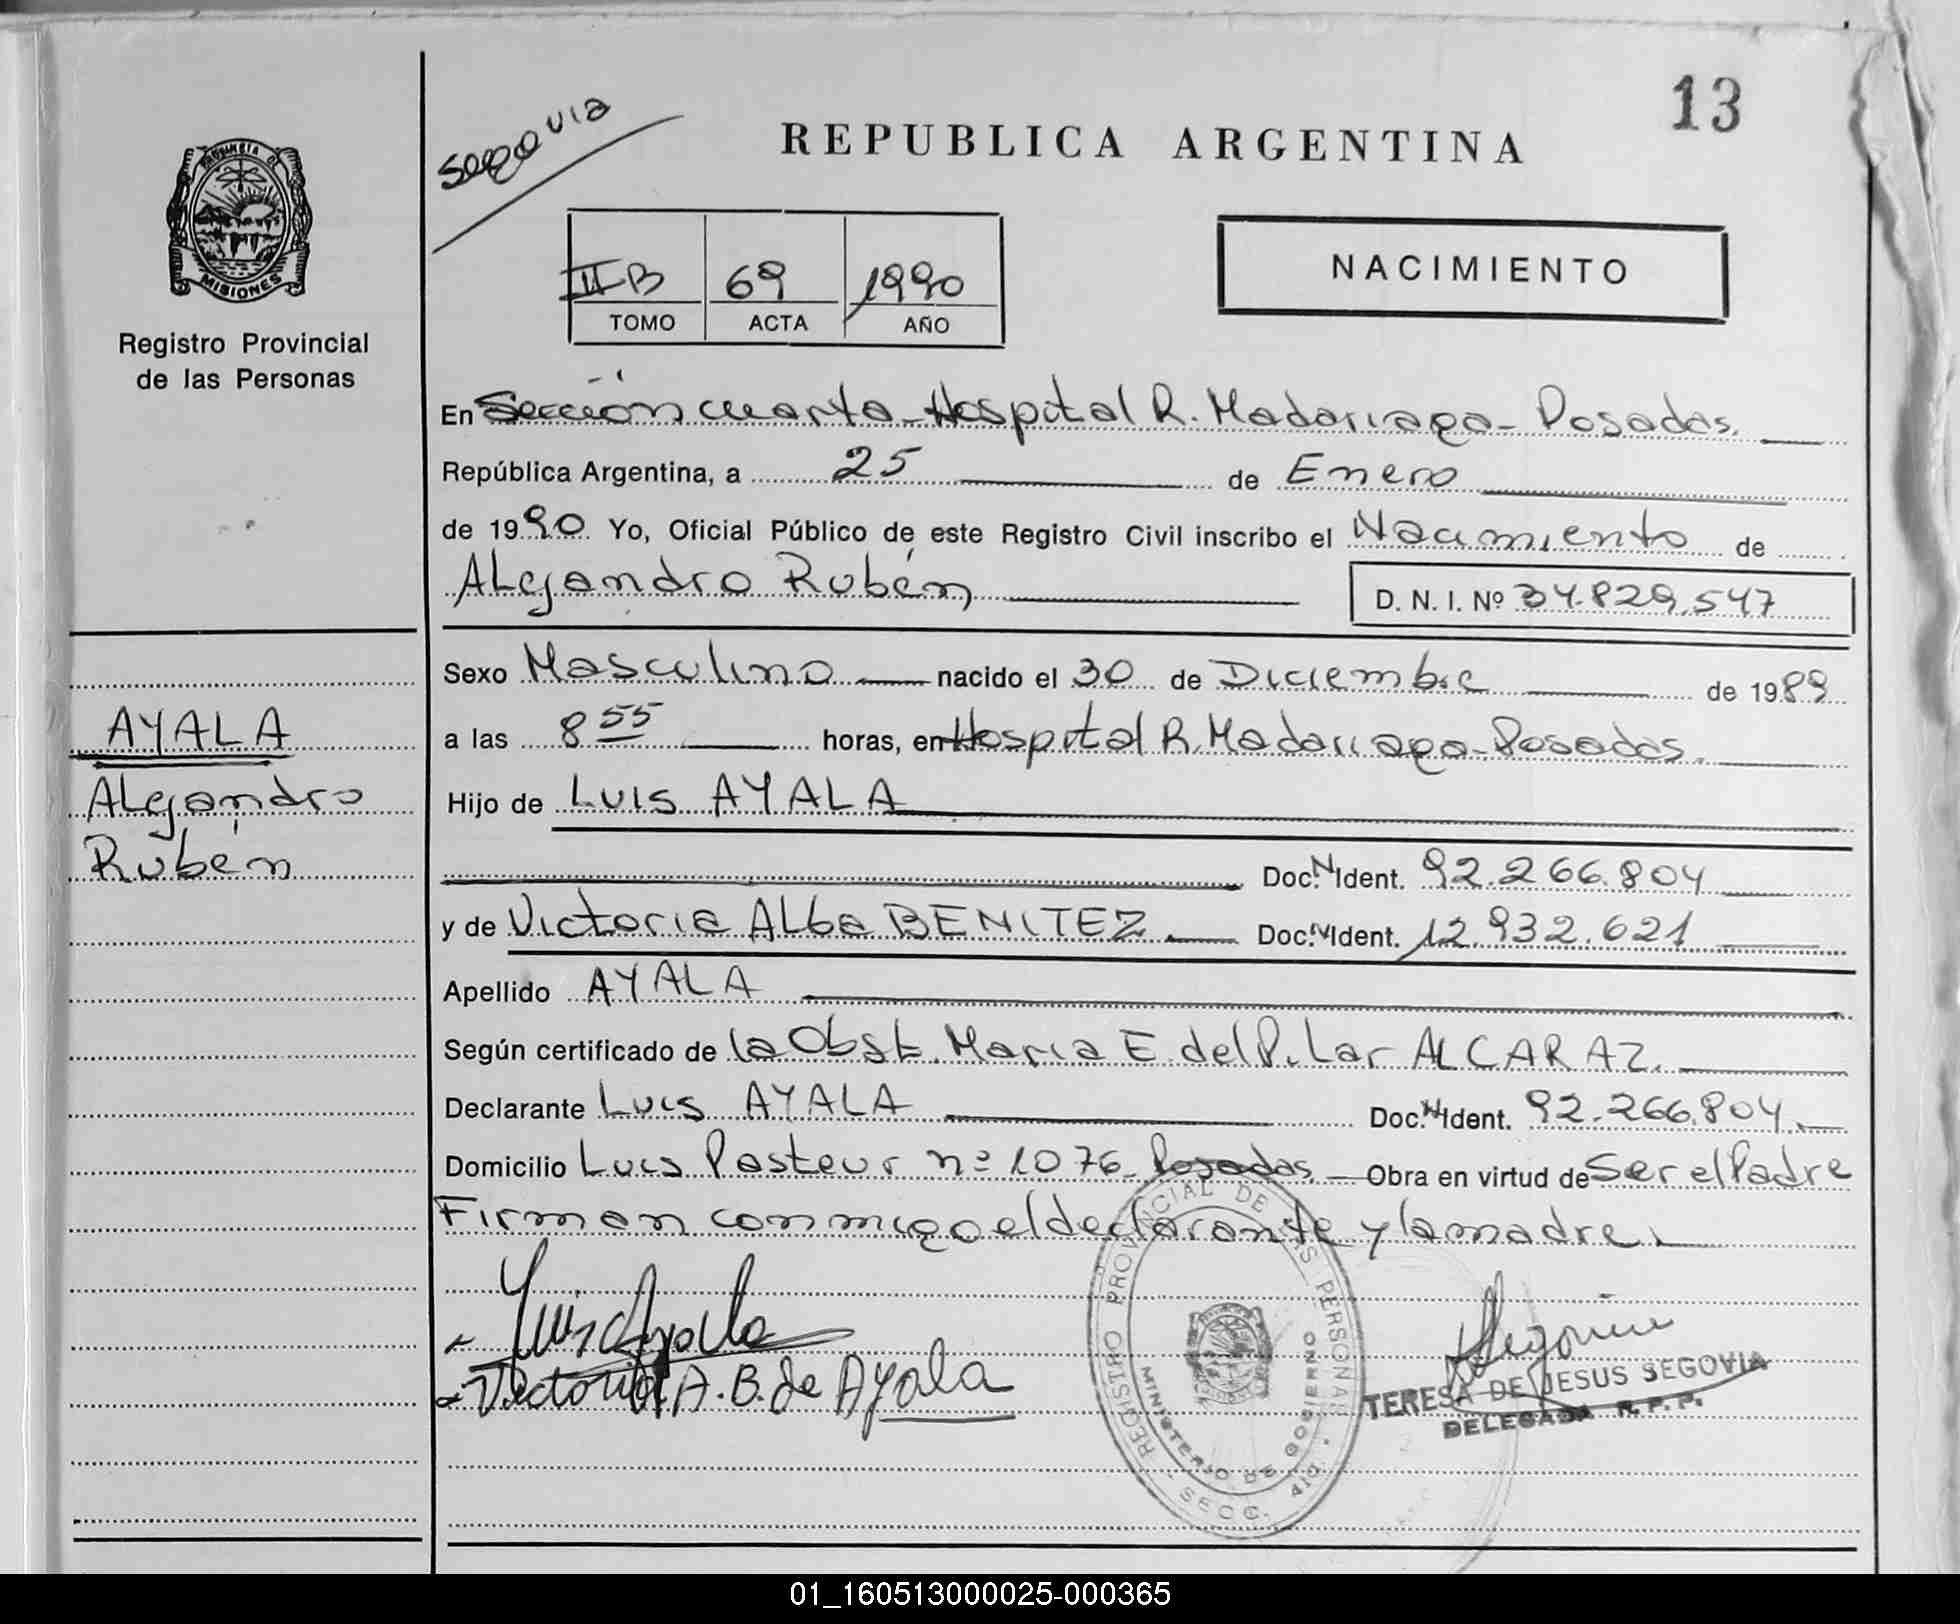 13
segovia
REPUBLICA ARGENTINA
PROVINCIA DE
MISIONES
Registro Provincial
de las Personas
II B 69 1990
TOMO ACTA AÑO
NACIMIENTO
En Sección cuarta - Hospital R. Madariaga - Posadas.
República Argentina, a 25 de Enero
de 1990 Yo, Oficial Público de este Registro Civil inscribo el Nacimiento de
Alejandro Rubén D. N. I. Nº 34.829.547
Sexo Masculino nacido el 30 de Diciembre de 1989
a las 8 55 horas, en Hospital R. Madariaga - Posadas.
Hijo de Luis AYALA
Doc. N. Ident. 92.266.804
y de Victoria Alba BENITEZ Doc. N. Ident. 12.932.621
Apellido AYALA
Según certificado de la Obst. María E. del Pilar ALCARAZ.
Declarante Luis AYALA Doc. N. Ident. 92.266.804
Domicilio Luis Pasteur nº 1076 - Posadas. Obra en virtud de Ser el Padre
Firman conmigo el declarante y la madre.
AYALA
Alejandro
Rubén
Luis Ayala
Victoria A. B. de Ayala
REGISTRO PROVINCIAL DE LAS PERSONAS
MINISTERIO DE GOBIERNO
SECC. 4ta.
Segovia
TERESA DE JESUS SEGOVIA
DELEGADA R. P. P.
01_160513000025-000365